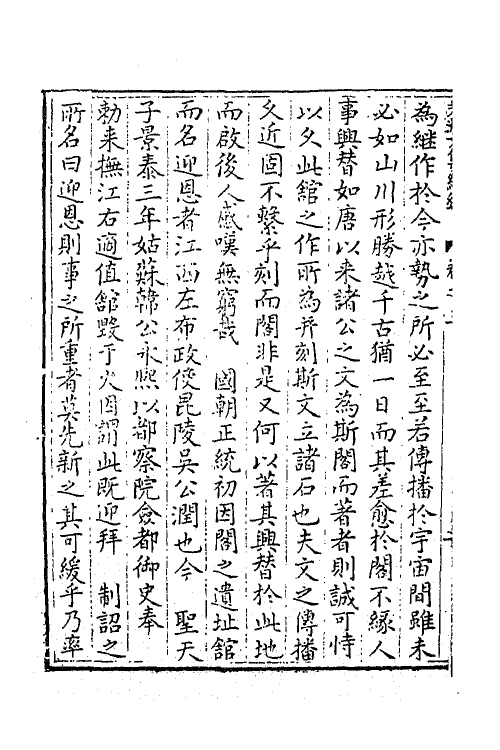 為継作於今亦勢之所必至至若傳播於宇宙間雖未
必如山川形勝越千古猶一日而其差愈於閣不緣人
事興替如唐以来諸公之文為斯閣而著者則誠可恃
以久此舘之作所為并刻斯文立諸石也夫文之傳播
久近固不繫乎刻而閣非是又何以著其興替於此地
而啟後人感嘆無窮哉 國朝正統初因閣之遺址舘
而名迎恩者江西左布政使毘陵吳公潤也今 聖天
子景泰三年姑蘇韓公永熙以都察院僉都御史奉
勅来撫江右適值舘燬于火因謂此既迎拜 制詔之
所名曰迎恩則事之所重者莫先新之其可緩乎乃率